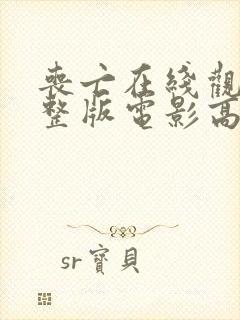 喪亡在綫觀
整版電影高
sr寶貝